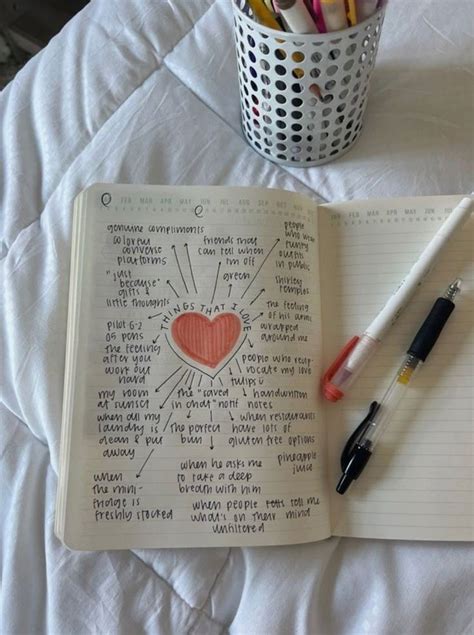 FEB MAR APR MAY JUN JUL AUG SEP OCT NOV DEC
FEB MAR APR MAY JUN
genuine compliments
colorful
converse
platforms
friends that
can tell when
i'm off
people
who wear
funny
outfits
in public
"just
because"
gifts &
little thoughts
green
shirley
temples
THINGS THAT I LOVE
the feeling
of his arms
wrapped
around me
pilot G-2
05 pens
the feeling
after you
work out
hard
people who recip-
vocate my love
tulips
my room
at sunset
the "saved
in chat" notif
handwritten
notes
when all my
laundry is
clean & put
away
the perfect
bun
when restaurants
have lots of
gluten free options
when
the mini-
fridge is
freshly stocked
when he asks me
to take a deep
breath with him
pineapple
juice
when people tell me
what's on their mind
unfiltered